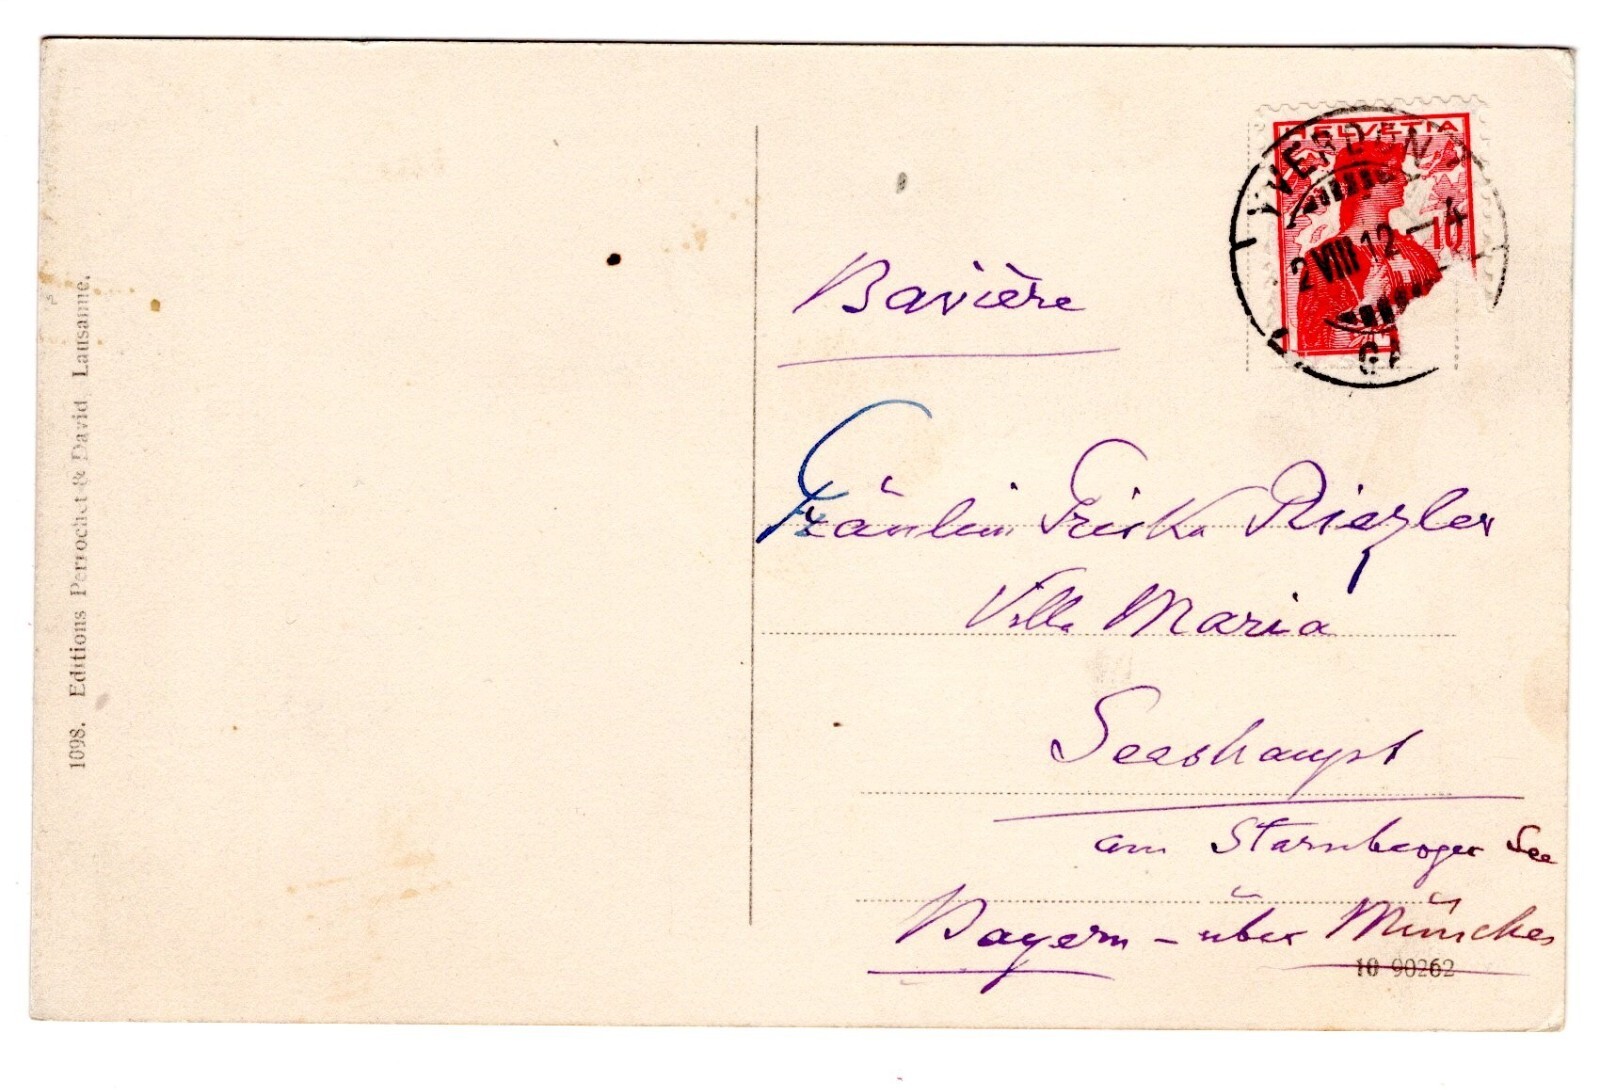 1098. Editions Perrochet & David, Lausanne.
HELVETIA
10
YVERDON
2 VIII 12 – 4
Bavière
Fräulein Friska Riezler
Villa Maria
Seeshaupt
am Starnberger See
Bayern – über München
10 90262